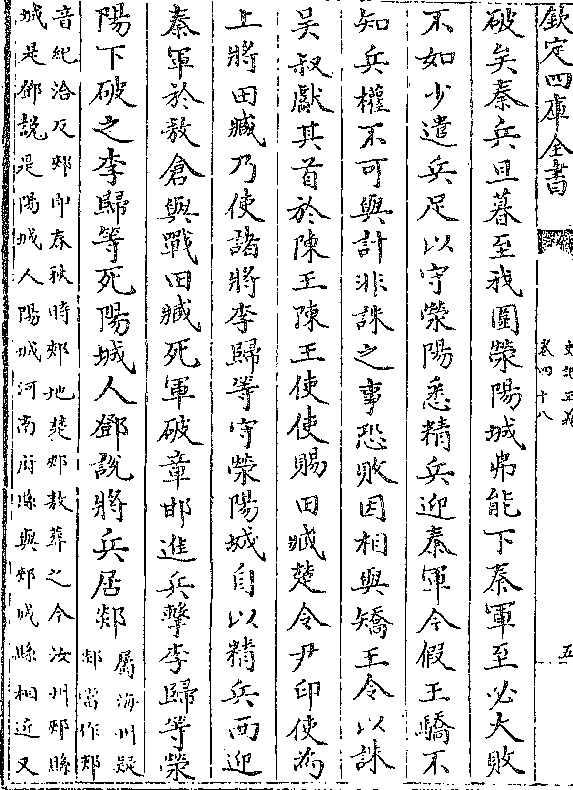 欽定四庫全書
史記正義
卷四十八
五
破矣秦兵旦暮至我圍滎陽城弗能下秦軍至必大敗
不如少遺兵足以守滎陽悉精兵迎秦軍今假王驕不
知兵權不可與計非誅之事恐敗因相與矯王令以誅
吳叔獻其首於陳王陳王使使賜田臧楚令尹印使為
上將田臧乃使諸將李歸等守滎陽城自以精兵西迎
秦軍於敖倉與戰田臧死軍破章邯進兵擊李歸等滎
陽下破之李歸等死陽城人鄧說將兵居郯
屬海州疑
郯當作郟
音紀洽反郟即春秋時郟地楚郟敖葬之今汝州郟縣
城是鄧說是陽城人陽城河南府縣與郟城縣相近又